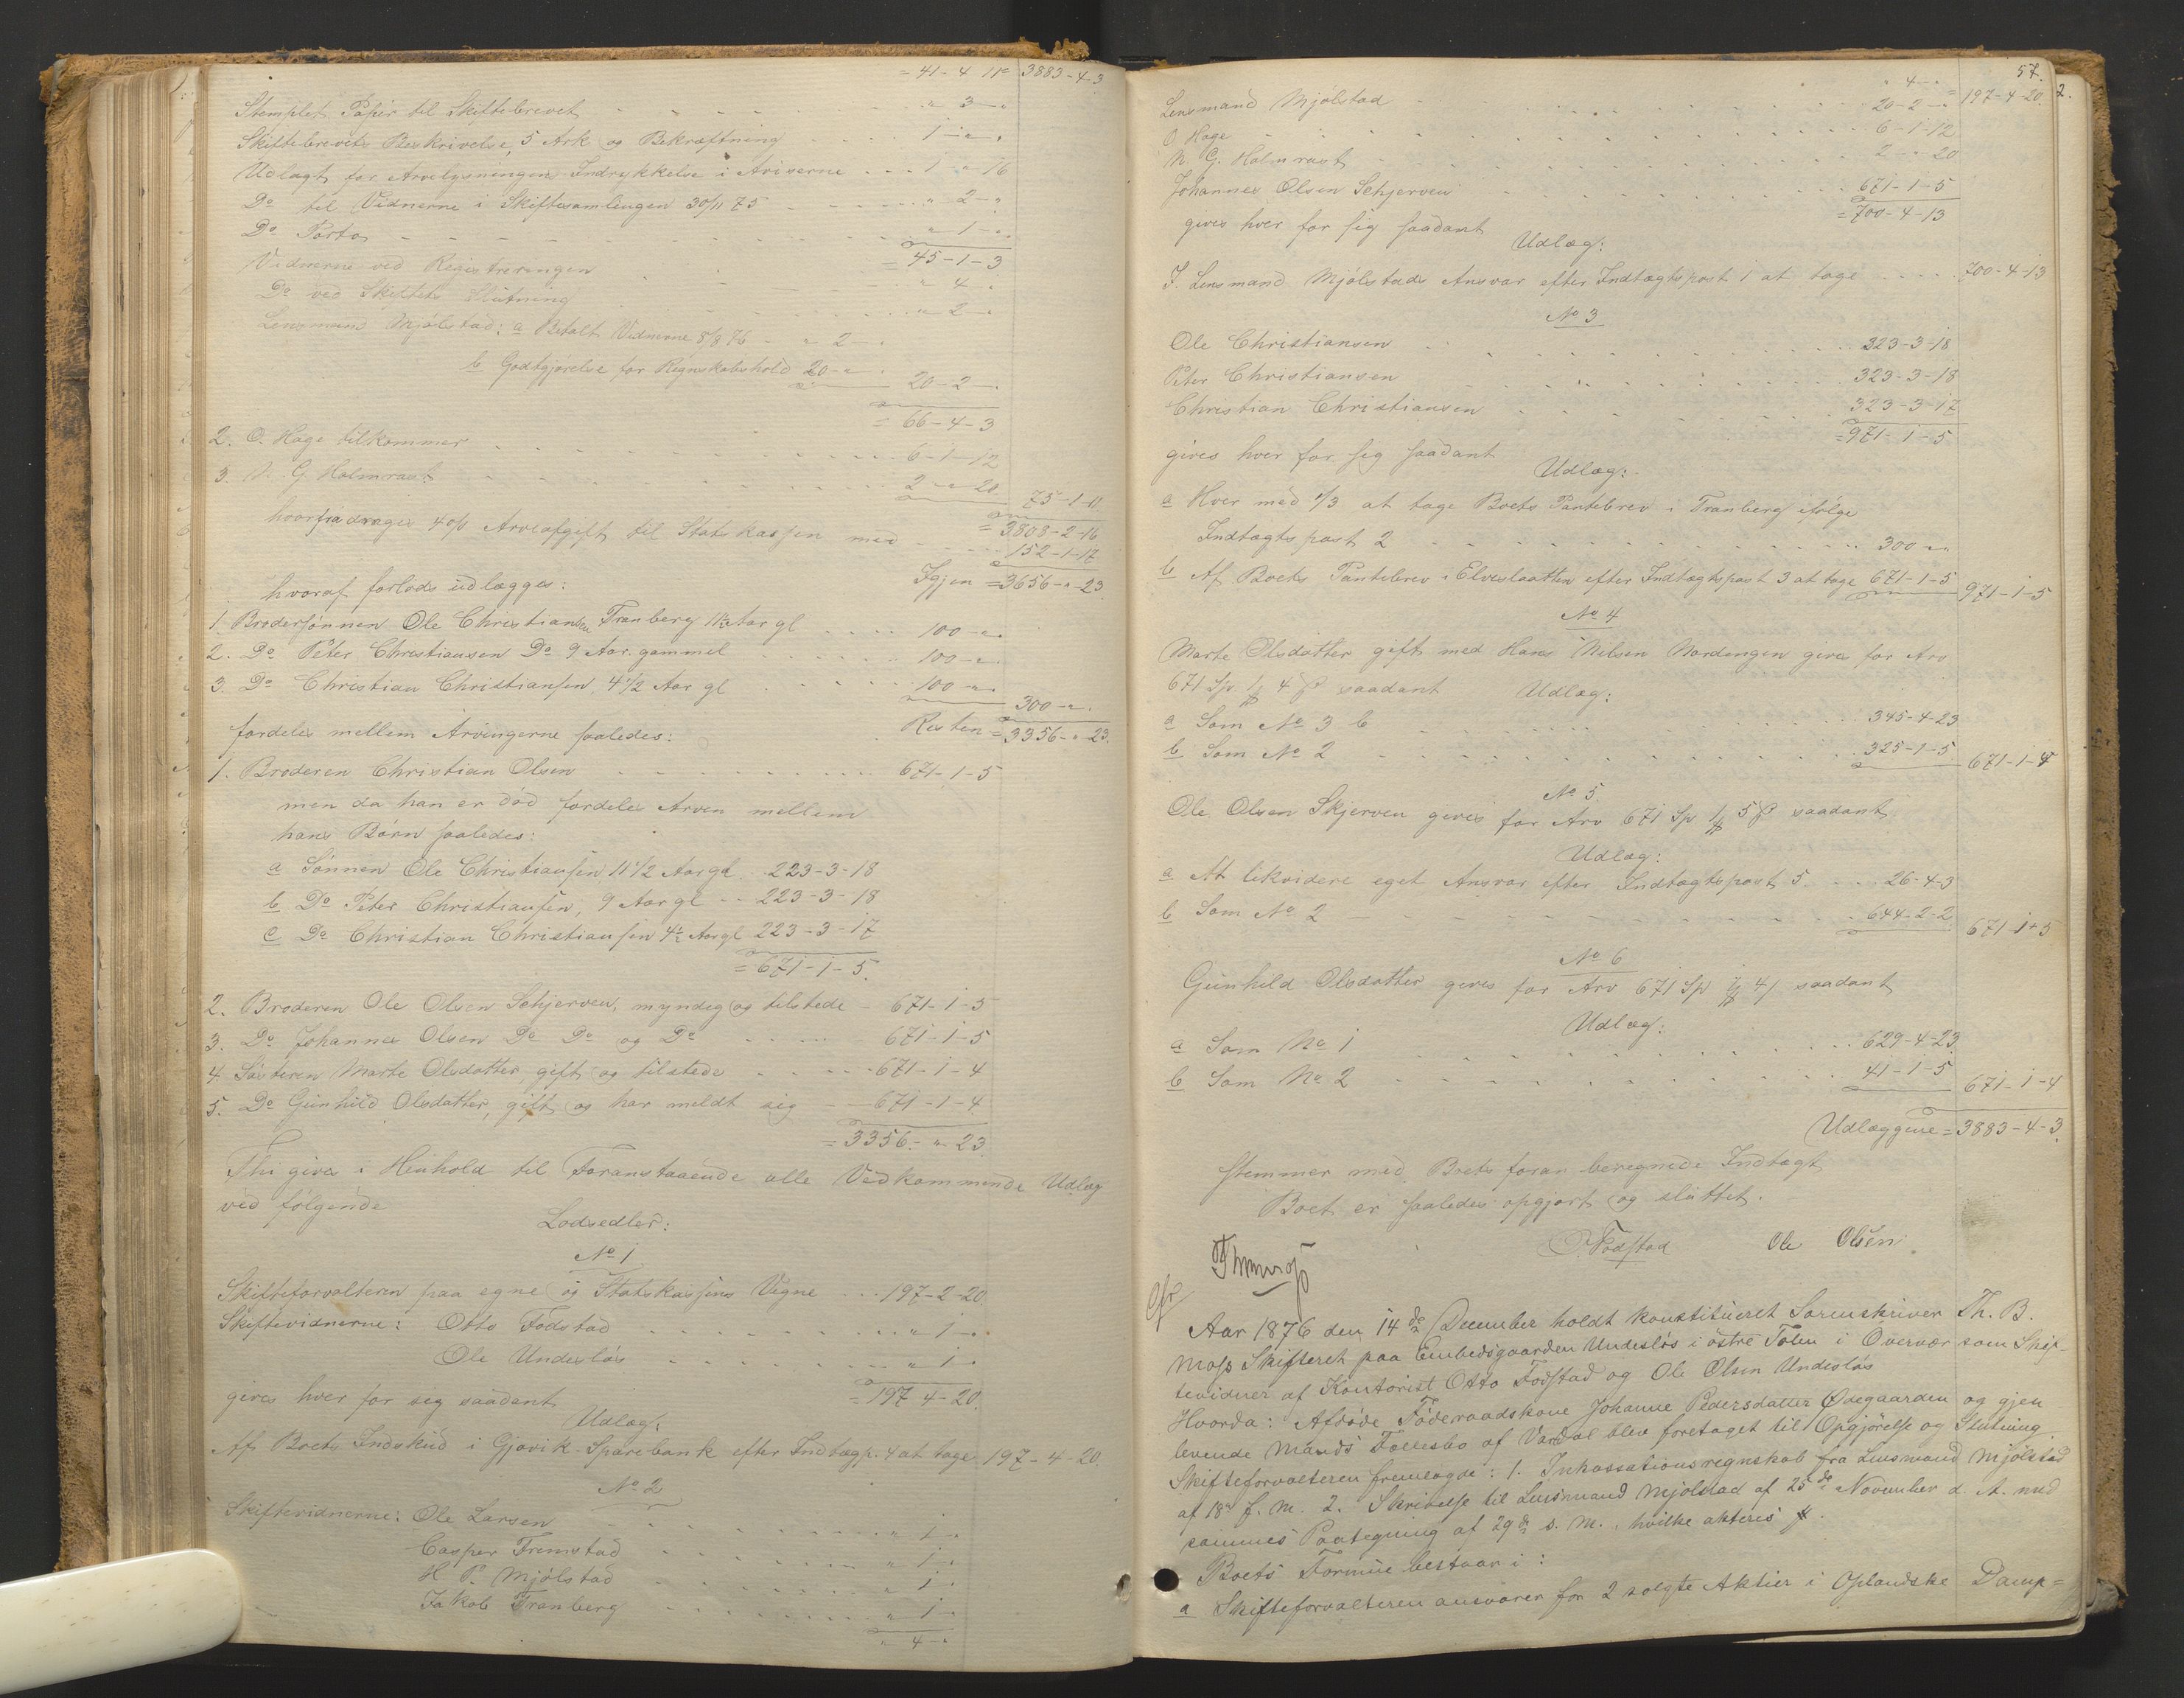 = 41-4-11 3883-4-3
Stemplet Papir til Skiftebrevet - - - - „ 3-„
Skiftebrevets Beskrivelse, 5 Ark og Bekræftning - - - 1-„-„
Udlagt for Arvelysningens Indrykkelse i Aviserne - - - 1-„-16
Do til Vidnerne i Skiftesamlingen 30/11 75 - - - - „ 2-„
Do Porto - - - - - - „ 1-„
= 45-1-3
Vidnerne ved Registreringen - - - - „ 4-„
Do ved Skiftets Slutning - - - - „ 2-„
Lensmand Mjølstad: a Betalt Vidnerne 8/8 76 - „ 2-„
b Godtgjørelse for Regnskabshold 20-„-„ 20-2-„
= 66-4-3
2. O. Hage tilkommer - - - - 6-1-12
3. N. G. Holmrast - - - - 2-„-20 75-1-11
= 3808-2-16
hvorfra drages 4 o/o Arveafgift til Statskassen med - - - 152-1-17
Igjen = 3656-„-23.
hvoraf forlods udlægges:
1. Brodersønnen Ole Christiansen Tranberg 11½ Aar gl - - - 100-„-„
2. Do Peter Christiansen Do 9 Aar gammel - - - 100-„-„
3. Do Christian Christiansen, 4 1/2 Aar gl - - - 100-„-„
300-„-„
Resten = 3356-„-23.
fordeles mellem Arvingerne saaledes:
1. Broderen Christian Olsen - - - - 671-1-5
men da han er død fordeles Arven mellem
hans Børn saaledes:
a Sønnen Ole Christiansen 11 1/2 Aar gl. 223-3-18
b Do Peter Christiansen, 9 Aar gl - - 223-3-18
c Do Christian Christiansen 4½ Aar gl 223-3-17
= 671-1-5.
2. Broderen Ole Olsen Schjerven, myndig og tilstede - 671-1-5
3. Do Johannes Olsen Do Do og Do - - - 671-1-5
4. Søsteren Marte Olsdatter, gift og tilstede - - - 671-1-4
5. Do Gunhild Olsdatter, gift og har meldt sig - 671-1-4
= 3356-„-23.
Thi gives i Henhold til Foranstaaende alle Vedkommende Udlæg
ved følgende
Lodsedler:
No 1
Skifteforvalteren paa egne og Statskassens Vegne - - 197-2-20.
Skiftevidnerne: Otto Fodstad - - - - „ 1-„
Ole Undesløs - - - - „ 1-„
= 197-4-20.
gives hver for sig saadant
Udlæg:
Af Boets Indskud i Gjøvik Sparebank efter Indtægtp. 4 at tage 197-4-20.
No 2
Skiftevidnerne: Ole Larsen - - - - „ 1-„
Casper Fremstad - - - - „ 1-„
H P. Mjølstad - - - - „ 1-„
Jakob Tranberg - - - - „ 1-„
„ 4-„
57.
„ 4-„ 197-4-20.
Lensmand Mjølstad - - - - 20-2-„
O Hage - - - - 6-1-12
N. G. Holmrast - - - - 2-„-20
Johannes Olsen Schjerven - - - - 671-1-5
= 700-4-13
gives hver for sig saadant
Udlæg:
I. Lensmand Mjølstads Ansvar efter Indtægtspost 1 at tage - - - 700-4-13
No 3
Ole Christiansen - - - - 323-3-18
Peter Christiansen - - - - 323-3-18
Christian Christiansen - - - - 323-3-17
= 971-1-5
gives hver for sig saadant
Udlæg:
a Hver med 1/3 at tage Boets Pantebrev i Tranberg ifølge
Indtægtspost 2 - - - - 300-„-„
b Af Boets Pantebrev i Elveslaatten efter Indtægtspost 3 at tage 671-1-5 971-1-5
No 4
Marte Olsdatter gift med Hans Nilsen Nordengen gives for Arv
671 Sp 1 4 ß saadant Udlæg:
a Som No 3 b - - - - 345-4-23
b Som No 2 - - - - 325-1-5 671-1-4
No 5.
Ole Olsen Skjerven gives for Arv 671 Sp 1 5 ß saadant
Udlæg:
a At likvidere eget Ansvar efter Indtægtspost 5. - - 26-4-3
b Som No 2 - - - - 644-2-2 671-1-5
No 6
Gunhild Olsdatter gives for Arv 671 Sp 1 4 ß saadant
Udlæg:
a Som No 1 - - - - 629-4-23.
b Som No 2 - - - - 41-1-5 671-1-4
Udlæggene = 3883-4-3.
stemmer med Boets foran beregnede Indtægt
Boet er saaledes opgjort og sluttet.
O. Fodstad Ole Olsen
Th Moss
Aar 1876 den 14de December holdt konstitueret Sorenskriver Th. B.
Moss Skifteret paa Embedsgaarden Undesløs i østre Toten i Overvær som Skif-
tevidner af Kontorist Otto Fodstad og Ole Olsen Undesløs
Hvorda: Afdøde Føderaadskone Johanne Pedersdatter Øvegaarden og gjen
levende Mands Fællesbo af Vardal blev foretaget til Opgjørelse og Slutning.
Skifteforvalteren fremlagde: 1. Inkassationsregnskab fra Lensmand Mjølstad
af 18de f. M. 2. Skrivelse til Lensmand Mjølstad af 25de November d. A. med
sammes Paategning af 29de s. M., hvilke akteres.
Boets Formue bestaar i:
a Skifteforvalteren ansvarer for 2 solgte Aktier i Oplandske Damp=